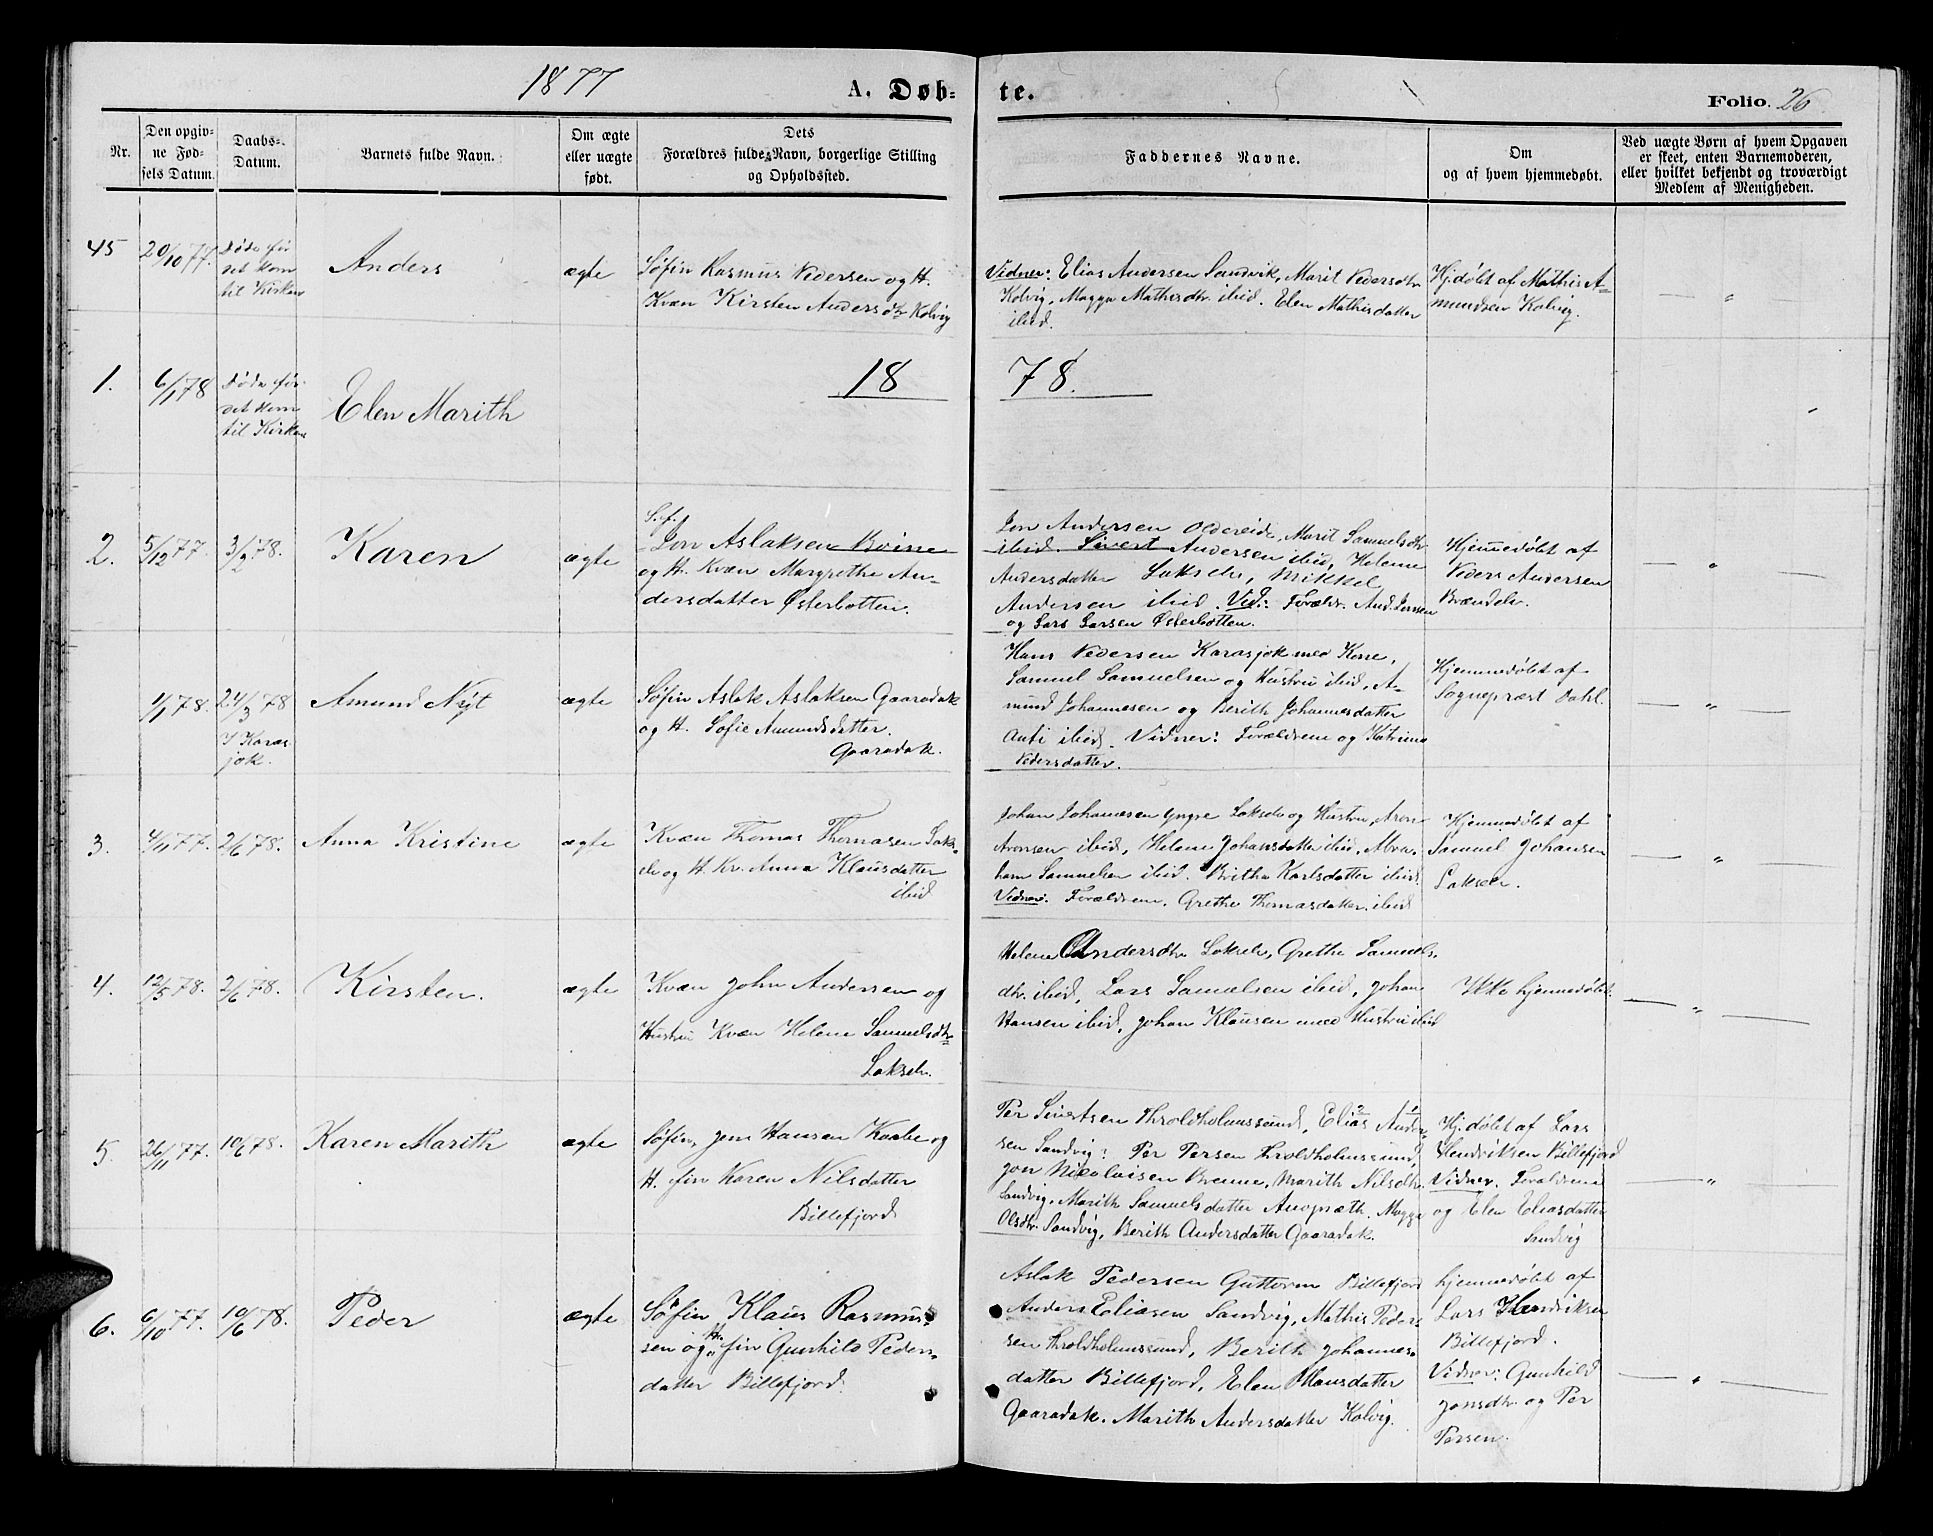 1877
A. Døb-
te.
Folio. 26
Nr.
Den opgiv-
ne Fød-
sels Datum.
Daabs-
Datum.
Barnets fulde Navn.
Om ægte
eller uægte
født.
Dets
Forældres fulde Navn, borgerlige Stilling
og Opholdssted.
Faddernes Navne.
Om
og af hvem hjemmedøbt.
Ved uægte Børn af hvem Opgaven
er skeet, enten Barnemoderen,
eller hvilket bekjendt og troværdigt
Medlem af Menigheden.
45
20/10 77.
Døde før
det kom
til Kirken
Anders
ægte
Søfin Rasmus Pedersen og H.
Kvæn Kirsten Andersdtr Kolvig
Vidner: Elias Andersen Sandvik, Marit Pedersdtr
Kolvig, Magga Mathisdtr. ibid. Elen Mathisdatter
ibid.
Hj.døbt af Mathis A-
mundsen Kolvig.
18
78.
1.
6/1 78
Døde før
det kom
til Kirken
Elen Marith
2.
5/12 77.
3/2 78.
Karen
ægte
S.f.
Jon Aslaksen
og H. Kvæn Margrethe An-
dersdatter Østerbotten.
Jon Andersen Oldereide, Marit Samuelsdtr
ibid. Sivert Andersen ibid, Helene
Andersdatter Lakselv, Mikkel
Andersen ibid. Vid: Foreldr. And. Larsen
og Lars Larsen Østerbotten.
Hjemmedøbt af
Peders Andersen
Brændelv.
1/1 78.
24/3 78
I Karas-
jok.
Amund Nyt
ægte
Søfin Aslak Aslaksen Gaaradak
og H. Sofie Amundsdatter.
Gaaradak.
Hans Pedersen Karasjok med Kone,
Samuel Samuelsen og Hustru ibid, A-
mund Johannesen og Berith Johannesdatter
Anti ibid. Vidner: Forældrene og Katrina
Pedersdatter.
Hjemmedøbt af
Sognepræst Dahl.
3.
4/11 77.
2/6 78.
Anna Kristine
ægte
Kvæn Thomas Thomasen Lak-
elv og H. Kv. Anna Klausdatter
ibid
Johan Johannesen yngre Lakselv og Hustru, Aron
Aronsen ibid, Helene Johansdatter ibid, Abra-
ham Samuelsen ibid. Britha Karlsdatter ibid.
Vidner: Forældrene. Grethe Thomasdatter ibid
Hjemmedøbt af
Samuel Johansen
Lakselv.
4.
12/5 78.
2/6 78.
Kirsten.
ægte
Kvæn John Andersen og
Hustru Kvæn Helene Samuelsdtr
Lakselv.
Helene Andersdtr Lakselv, Grethe Samuels-
dtr. ibid, Lars Samuelsen ibid, Johan
Hansen ibid, Johan Klausen med Hustru ibid
Ikke hjemmedøbt.
5.
26/11 77.
10/6 78.
Karen Marith
ægte
Søfin, Jon Hansen Kvalve og
H. fin Karen Nilsdatter
Billefjord
Per Sivertsen Throldholmssund, Elias Ander-
sen Sandvig: Per Persen Throldholmssund,
Jon Nicolaisen Brenne, Marith Nilsdtr.
Sandvig, Marith Samuelsdatter Avopræth. Magga
Olsdtr. Sandvig, Berith Andersdatter Gaaradak.
Hj.døbt af Lars
Hendriksen Billefjord
Vidner. Forældrene
og Elen Eliasdatter
Sandvig
6.
6/10 77.
10/6 78.
Peder
ægte
Søfin Klaus Rasmus-
sen og H. fin Gunhild Peders-
datter Billefjord.
Aslak Pedersen Guttorm Billefjord
Anders Eliasen Sandvig, Mathis Peder-
sen Throldholmssund, Berith Johannes-
datter Billefjord, Elen Hansdatter
Gaaradak. Marith Andersdatter Kolvig.
hjemmedøbt af
Lars Hendriksen
Billefjord.
Vidner: Gunhild
Jonsdtr. og Per
Persen.